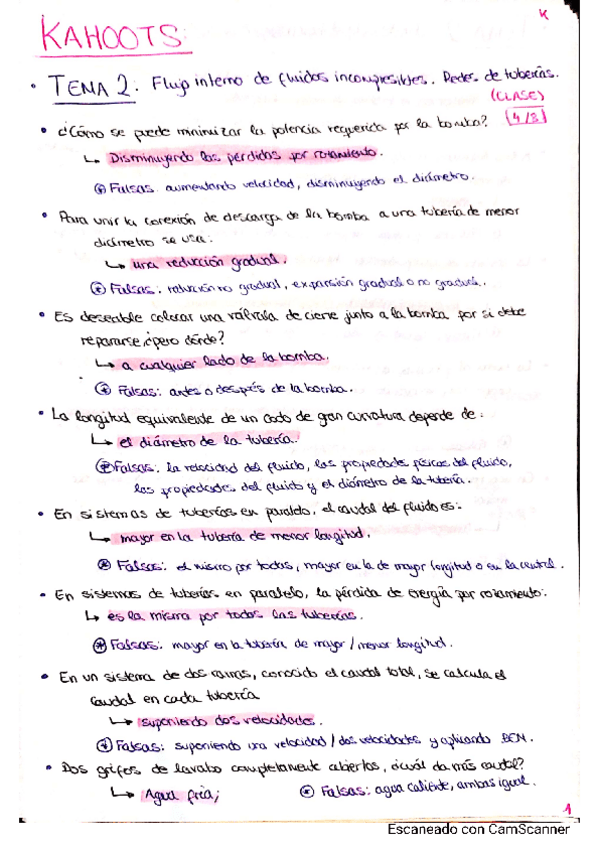 K
KAHOOTS:
• TEMA 2: Flujo interno de fluidos incompresibles. Redes de tuberías.
(CLASE)
4/8
• ¿Cómo se puede minimizar la potencia requerida por la bomba?
↳ Disminuyendo las pérdidas por rozamiento.
* Falsas: aumentando velocidad, disminuyendo el diámetro.
• Para unir la conexión de descarga de la bomba a una tubería de menor
diámetro se usa:
↳ una reducción gradual.
* Falsas: reducción no gradual, expansión gradual o no gradual.
• Es deseable colocar una válvula de cierre junto a la bomba por si debe
repararse ¿pero dónde?
↳ a cualquier lado de la bomba.
* Falsas: antes o después de la bomba.
• La longitud equivalente de un codo de gran curvatura depende de:
↳ el diámetro de la tubería.
* Falsas: la velocidad del fluido, las propiedades físicas del fluido,
las propiedades del fluido y el diámetro de la tubería.
• En sistemas de tuberías en paralelo, el caudal del fluido es:
↳ mayor en la tubería de menor longitud.
* Falsas: el mismo por todas, mayor en la de mayor longitud o en la central.
• En sistemas de tuberías en paralelo, la pérdida de energía por rozamiento:
↳ es la misma por todas las tuberías.
* Falsas: mayor en la tubería de mayor/menor longitud.
• En un sistema de dos ramas, conocido el caudal total, se calcula el
caudal en cada tubería
↳ suponiendo dos velocidades.
* Falsas: suponiendo una velocidad / dos velocidades y aplicando BEM.
• Dos grifos de lavabo completamente abiertos, ¿cuál da más caudal?
↳ Agua fría; * Falsas: agua caliente, ambas igual.
1
Escaneado con CamScanner